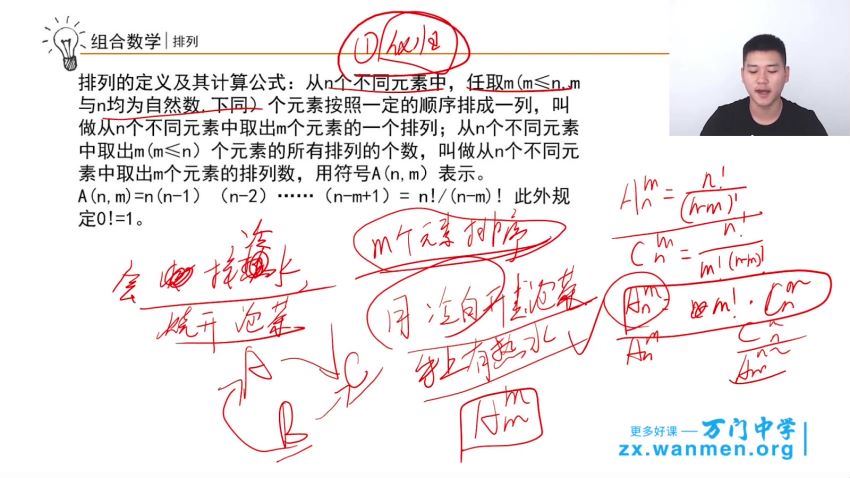 组合数学 | 排列
排列的定义及其计算公式：从n个不同元素中，任取m(m≤n,m
与n均为自然数,下同）个元素按照一定的顺序排成一列，叫
做从n个不同元素中取出m个元素的一个排列；从n个不同元素
中取出m(m≤n）个元素的所有排列的个数，叫做从n个不同元
素中取出m个元素的排列数，用符号A(n,m）表示。
A(n,m)=n(n-1）（n-2）……（n-m+1）= n!/(n-m)! 此外规
定0!=1。
①
m个元素排序
冷
会 接 水
烧开 泡菜
用冷白开去泡菜
手上有热水
A → C
B
A_m^m
A_n^m = n!/(n-m)!
C_n^m = n!/m!(n-m)!
A_n^m = m! · C_n^m
A_n^m
更多好课 — 万门中学
zx.wanmen.org